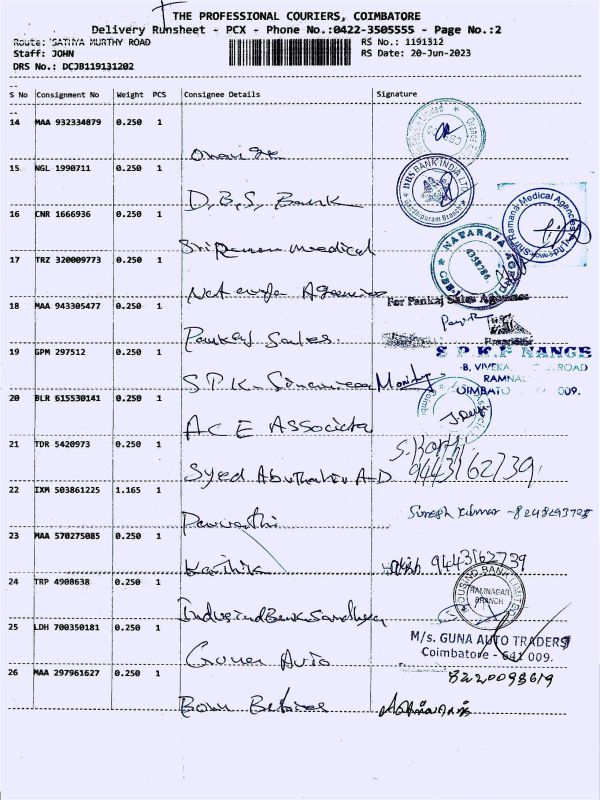 THE PROFESSIONAL COURIERS, COIMBATORE
Delivery Runsheet - PCX - Phone No.:0422-3505555 - Page No.:2
Route: SATHYA MURTHY ROAD
RS No.: 1191312
Staff: JOHN
RS Date: 20-Jun-2023
DRS No.: DCJB119131202
S No Consignment No Weight PCS Consignee Details Signature
14 MAA 932334879 0.250 1
15 NGL 1990711 0.250 1
D.B.S. Bank
DBS BANK INDIA LTD
16 CNR 1666936 0.250 1
Medical
Shri Ramana Medical Agencies
17 TRZ 320009773 0.250 1
Agencies
NATARAJA
18 MAA 943305477 0.250 1
Pankaj Sales.
For Pankaj Sales Agencies
19 GPM 297512 0.250 1
S.P.K.
S P K F NANCE
-B, VIVEKA ROAD
RAMNA
COIMBATO 009.
20 BLR 615530141 0.250 1
ACE Associate
21 TDR 5420973 0.250 1
Syed A-D
S. Karthi
9443162739
22 IXM 503861225 1.165 1
Parvathi
Suresh Kumar
23 MAA 570275085 0.250 1
Karthik
9443162739
24 TRP 4908638 0.250 1
IndusindBank Sandhya
HOUSING BANK LIMITED
RAMNAGAR
BRANCH
25 LDH 700350181 0.250 1
Auto
M/s. GUNA AUTO TRADERS
Coimbatore - 641 009.
26 MAA 297961627 0.250 1
8220093619